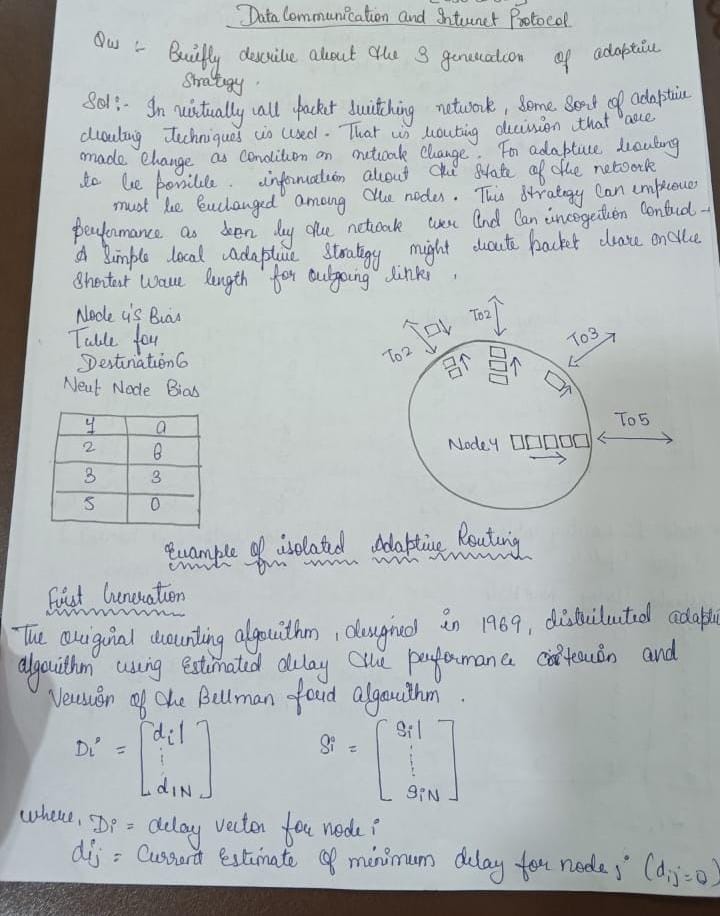 Data Communication and Internet Protocol
Qus :- Briefly describe about the 3 generation of adaptive
Strategy.
Sol:- In virtually all packet switching network, some sort of adaptive
routing techniques is used. That is routing decision that are
made change as condition on network change. For adaptive routing
to be possible. information about the state of the network
must be exchanged among the nodes. This strategy can improve
performance as seen by the network user and can in congestion control -
A simple local adaptive strategy might route packet on the
shortest wave length for outgoing links.
Node 4's Bias
Table for
Destination 6
Next Node Bias
4 9
2 6
3 3
5 0
To2
To2
To3
To5
Node 4
Example of isolated Adaptive Routing
First Generation
The original routing algorithm, designed in 1969, distributed adapti
algorithm using estimated delay the performance criterion and
Version of the Bellman ford algorithm.
Di = [di1 ⋮ diN] Si = [Si1 ⋮ SiN]
where, Di = delay vector for node i
dij = Current estimate of minimum delay for node j (dij=0)